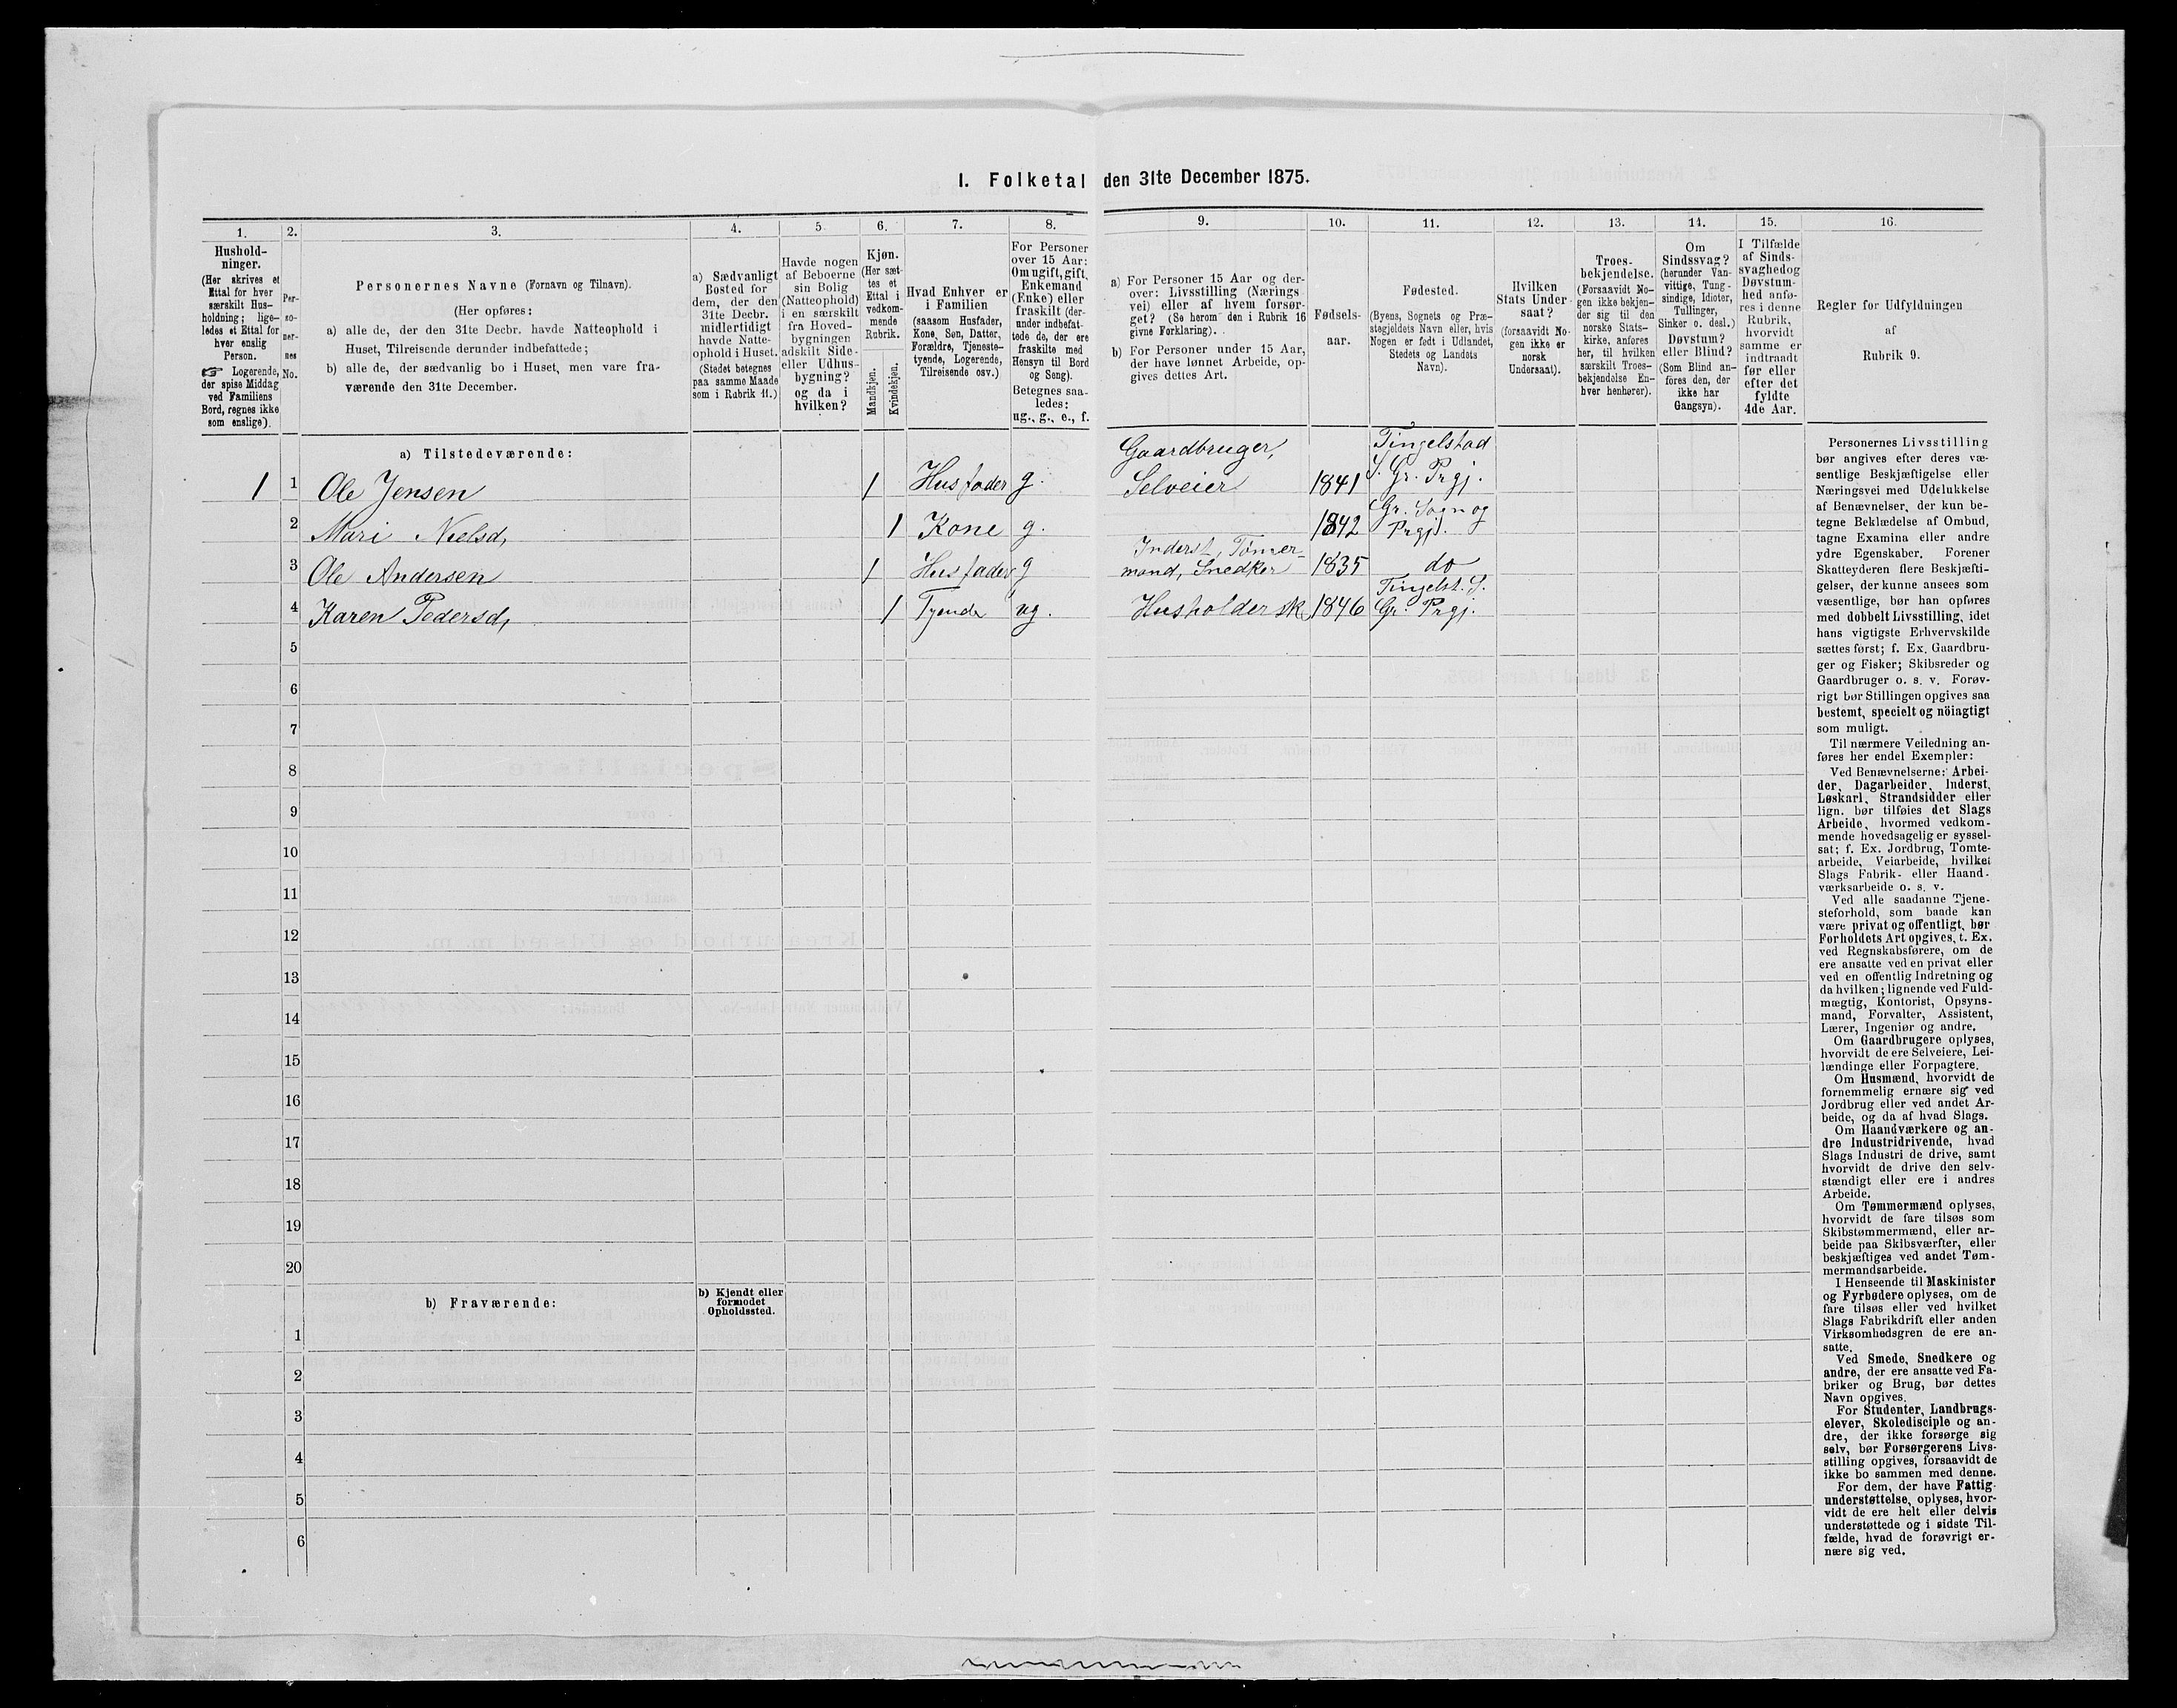 I. Folketal den 31te December 1875.
1.
Hushold-
ninger.
(Her skrives et
Ettal for hver
særskilt Hus-
holdning; lige-
ledes et Ettal for
hver enslig
Person.
☞ Logerende,
der spise Middag
ved Familiens
Bord, regnes ikke
som enslige).
2.
Per-
so-
ner-
nes
No.
3.
Personernes Navne (Fornavn og Tilnavn).
(Her opføres:
a) alle de, der den 31te Decbr. havde Natteophold i
Huset, Tilreisende derunder indbefattede;
b) alle de, der sædvanlig bo i Huset, men vare fra-
værende den 31te December.
4.
a) Sædvanligt
Bosted for
dem, der den
31te Decbr.
midlertidigt
havde Natte-
ophold i Huset.
(Stedet betegnes
paa samme Maade
som i Rubrik 11.)
5.
Havde nogen
af Beboerne
sin Bolig
(Natteophold)
i en særskilt
fra Hoved-
bygningen
adskilt Side-
eller Udhus-
bygning?
og da i
hvilken?
6.
Kjøn.
(Her sæt-
tes et
Ettal i
vedkom-
mende
Rubrik.
Mandkjøn.
Kvindekjøn.
7.
Hvad Enhver er
i Familien
(saasom Husfader,
Kone, Søn, Datter,
Forældre, Tjeneste-
tyende, Logerende,
Tilreisende osv.)
8.
For Personer
over 15 Aar:
Om ugift, gift,
Enkemand
(Enke) eller
fraskilt (der-
under indbefat-
tede de, der ere
fraskilte med
Hensyn til Bord
og Seng).
Betegnes saa-
ledes:
ug., g., e., f.
9.
a) For Personer 15 Aar og der-
over: Livsstilling (Nærings
vei) eller af hvem forsør-
get? (Se herom den i Rubrik 16
givne Forklaring).
b) For Personer under 15 Aar,
der have lønnet Arbeide, op-
gives dettes Art.
10.
Fødsels-
aar.
11.
Fødested.
(Byens, Sognets og Præ-
stegjeldets Navn eller, hvis
Nogen er født i Udlandet,
Stedets og Landets
Navn).
12.
Hvilken
Stats Under-
saat?
(forsaavidt No-
gen ikke er
norsk
Undersaat).
13.
Troes-
bekjendelse.
(Forsaavidt No-
gen ikke bekjen-
der sig til den
norske Stats-
kirke, anføres
her, til hvilken
særskilt Troes-
bekjendelse En-
hver henhører).
14.
Om
Sindssvag?
(herunder Van-
vittige, Tung-
sindige, Idioter,
Tullinger,
Sinker o. desl.)
Døvstum?
eller Blind?
(Som Blind an-
føres den, der
ikke har
Gangsyn).
15.
I Tilfælde
af Sinds-
svaghed og
Døvstum-
hed anfø-
res i denne
Rubrik,
hvorvidt
samme er
indtraadt
før eller
efter det
fyldte
4de Aar.
16.
Regler for Udfyldningen
af
Rubrik 9.
a) Tilstedeværende:
1 1 Ole Jensen 1 Husfader g. Gaardbruger, Selveier 1841 Tingelstad S. Gr. Prgj.
2 Mari Nielsd, 1 Kone g. 1842 Gr. Sogn og Prgj.
3 Ole Andersen 1 Husfader g Inderst, Tømer- mand, Snedker 1835 do
4 Karen Pedersd, 1 Tyende ug. Husholdersk 1846 Tingelst. S. Gr. Prgj.
5
6
7
8
9
10
11
12
13
14
15
16
17
18
19
20
b) Fraværende:
b) Kjendt eller
formodet
Opholdssted.
1
2
3
4
5
6
Personernes Livsstilling
bør angives efter deres væ-
sentlige Beskjæftigelse eller
Næringsvei med Udelukkelse
af Benævnelser, der kun be-
tegne Beklædelse af Ombud,
tagne Examina eller andre
ydre Egenskaber. Forener
Skatteyderen flere Beskjæfti-
gelser, der kunne ansees som
væsentlige, bør han opføres
med dobbelt Livsstilling, idet
hans vigtigste Erhvervskilde
sættes først; f. Ex. Gaardbru-
ger og Fisker; Skibsreder og
Gaardbruger o. s. v. Forøv-
rigt bør Stillingen opgives saa
bestemt, specielt og nöiagtigt
som muligt.
Til nærmere Veiledning an-
føres her endel Exempler:
Ved Benævnelserne: Arbei-
der, Dagarbeider, Inderst,
Løskarl, Strandsidder eller
lign. bør tilføies det Slags
Arbeide, hvormed vedkom-
mende hovedsagelig er syssel-
sat; f. Ex. Jordbrug, Tomte-
arbeide, Veiarbeide, hvilket
Slags Fabrik- eller Haand-
værksarbeide o. s. v.
Ved alle saadanne Tjene-
steforhold, som baade kan
være privat og offentligt, bør
Forholdets Art opgives, t. Ex.
ved Regnskabsførere, om de
ere ansatte ved en privat eller
ved en offentlig Indretning og
da hvilken; lignende ved Fuld-
mægtig, Kontorist, Opsyns-
mand, Forvalter, Assistent,
Lærer, Ingeniør og andre.
Om Gaardbrugere oplyses,
hvorvidt de ere Selveiere, Lei-
lændinge eller Forpagtere.
Om Husmænd, hvorvidt de
fornemmelig ernære sig ved
Jordbrug eller ved andet Ar-
beide, og da af hvad Slags.
Om Haandværkere og an-
dre Industridrivende, hvad
Slags Industri de drive, samt
hvorvidt de drive den selv-
stændigt eller ere i andres
Arbeide.
Om Tømmermænd oplyses,
hvorvidt de fare tilsøs som
Skibstømmermænd, eller ar-
beide paa Skibsværfter, eller
beskjæftiges ved andet Tøm-
mermandsarbeide.
I Henseende til Maskinister
og Fyrbødere oplyses, om de
fare tilsøs eller ved hvilket
Slags Fabrikdrift eller anden
Virksomhedsgren de ere an-
satte.
Ved Smede, Snedkere og
andre, der ere ansatte ved Fa-
briker og Brug, bør dettes
Navn opgives.
For Studenter, Landbrugs-
elever, Skoledisciple og an-
dre, der ikke forsørge sig
selv, bør Forsørgerens Livs-
stilling opgives, forsaavidt de
ikke bo sammen med denne.
For dem, der have Fattig-
understøttelse, oplyses, hvor-
vidt de ere helt eller delvis
understøttede og i sidste Til-
fælde, hvad de forøvrigt er-
nære sig ved.